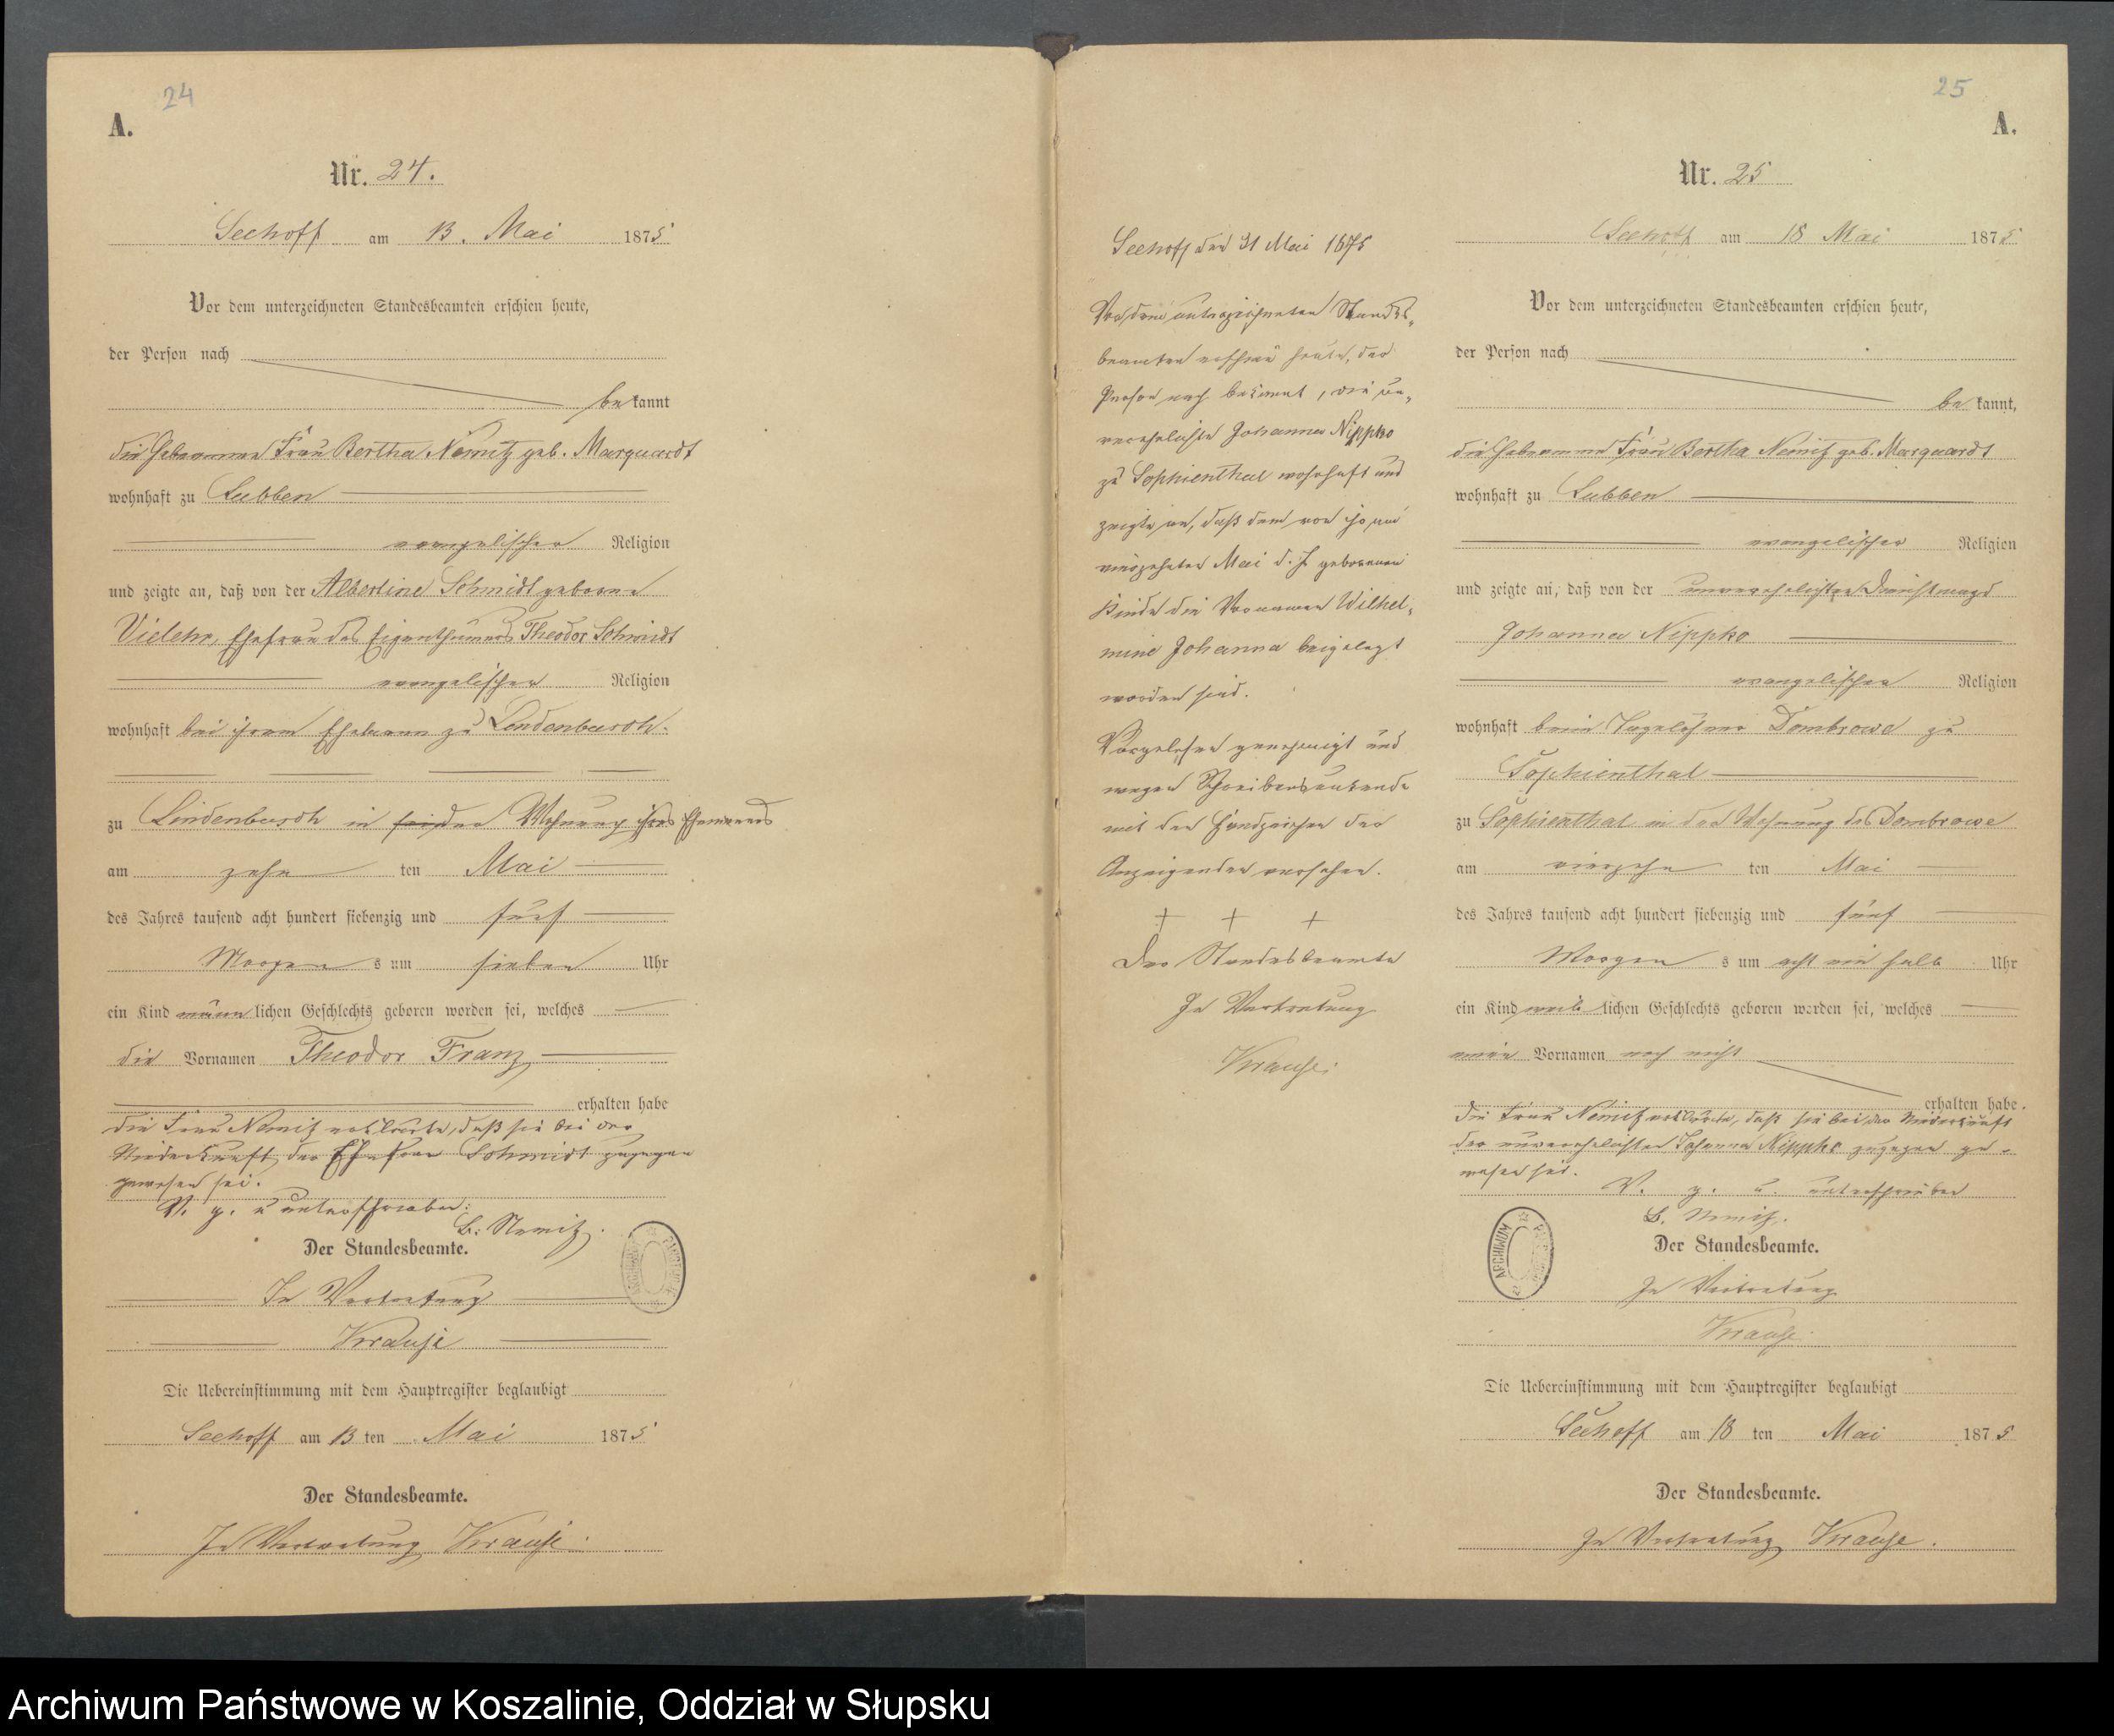 24
A.
Nr. 24.
Seehoff am 13. Mai 1875
Vor dem unterzeichneten Standesbeamten erschien heute,
der Person nach
bekannt
die Hebamme Frau Bertha Nemitz geb. Marquardt
wohnhaft zu Lubben
evangelischer Religion
und zeigte an, daß von der Albertine Schmidt geborene
Vielehr, Ehefrau des Eigenthümers Theodor Schmidt
evangelischer Religion
wohnhaft bei ihrem Ehemann zu Lindenbusch.
zu Lindenbusch in der Wohnung ihres Ehemanns
am zehn ten Mai
des Jahres tausend acht hundert siebenzig und fünf
Morgens um sieben Uhr
ein Kind männlichen Geschlechts geboren worden sei, welches
die Vornamen Theodor Franz
erhalten habe
Die Frau Nemitz erklärte, daß sie bei der
Niederkunft der Ehefrau Schmidt zugegen
gewesen sei.
V. g. u unterschrieben:
B. Nemitz.
Der Standesbeamte.
In Vertretung
Krause
Die Uebereinstimmung mit dem Hauptregister beglaubigt
Seehoff am 13 ten Mai 1875
Der Standesbeamte.
In Vertretung Krause.
Seehoff den 31 Mai 1875
Vor dem unterzeichneten Standes-
beamten erschien heute, der
Person nach bekannt, die un-
verehelichte Johanna Nippko
zu Sophienthal wohnhaft und
zeigte an, daß dem von ihr am
vierzehnten Mai d. J. geborenen
Kinde die Vornamen Wilhel-
mine Johanna beigelegt
worden sind.
Vorgelesen genehmigt und
wegen Schreibensunkunde
mit den Handzeichen der
Anzeigenden versehen.
+ + +
Der Standesbeamte
In Vertretung
Krause.
25
A.
Nr. 25
Seehoff am 18 Mai 1875
Vor dem unterzeichneten Standesbeamten erschien heute,
der Person nach
bekannt,
die Hebamme Frau Bertha Nemitz geb. Marquardt
wohnhaft zu Lubben
evangelischer Religion
und zeigte an, daß von der unverehelichten Dienstmagd
Johanna Nippko
evangelischer Religion
wohnhaft beim Tagelöhner Dombrowe zu
Sophienthal
zu Sophienthal in der Wohnung des Dombrowe
am vierzehn ten Mai
des Jahres tausend acht hundert siebenzig und fünf
Morgens um acht ein halb Uhr
ein Kind weiblichen Geschlechts geboren worden sei, welches
einen Vornamen noch nicht
erhalten habe.
Die Frau Nemitz erklärte, daß sie bei der Niederkunft
der unverehelichten Johanna Nippko zugegen ge-
wesen sei.
V. g. u. unterschrieben
B. Nemitz.
ARCHIWUM
Der Standesbeamte.
In Vertretung
Krause.
Die Uebereinstimmung mit dem Hauptregister beglaubigt
Seehoff am 18 ten Mai 1875
Der Standesbeamte.
In Vertretung Krause.
Archiwum Państwowe w Koszalinie, Oddział w Słupsku